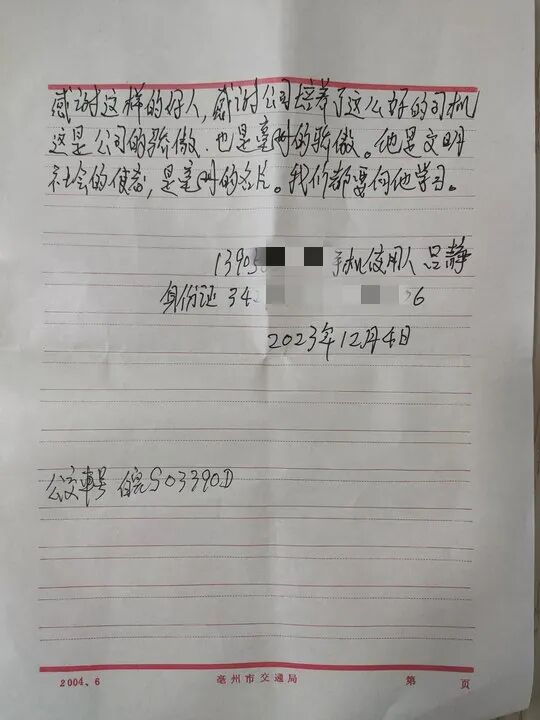 感谢这样的好人，感谢公司培养了这么好的司机
这是公司的骄傲．也是亳州的骄傲。他是文明
社会的使者，是亳州的名片。我们都要向他学习。
13905 手机使用人 吕静
身份证 342 36
2023年12月4日
公交車号 皖S03390D
2004、6 亳州市交通局 第 页